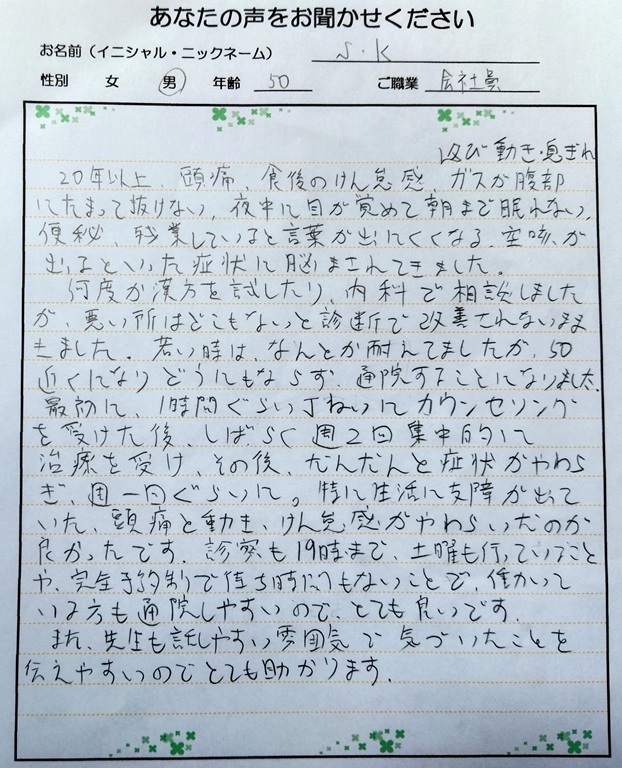 あなたの声をお聞かせください
お名前（イニシャル・ニックネーム） S・K
性別 女 男 年齢 50 ご職業 会社員
及び動き・息ぎれ
20年以上、頭痛、食後のけん怠感、ガスが腹部
にたまって抜けない、夜中に目が覚めて朝まで眠れない、
便秘、残業していると言葉が出にくくなる、空咳が
出るといった症状に悩まされてきました。
何度か漢方を試したり、内科で相談しました
が、悪い所はどこもないと診断で改善されないまま
きました。若い時は、なんとか耐えてましたが、50
近くになりどうにもならず、通院することになりました。
最初に、1時間ぐらい丁ねいにカウンセリング
を受けた後、しばらく週2回集中的に
治療を受け、その後、だんだんと症状がやわら
ぎ、週一回ぐらいに。特に生活に支障が出て
いた、頭痛と動き、けん怠感がやわらいだのが
良かったです。診察も19時まで、土曜も行っていること
や、完全予約制で待ち時間もないことで、働かって
いる方も通院しやすいので、とても良いです。
また、先生も話しやすい雰囲気で気づいたことを
伝えやすいのでとても助かります。